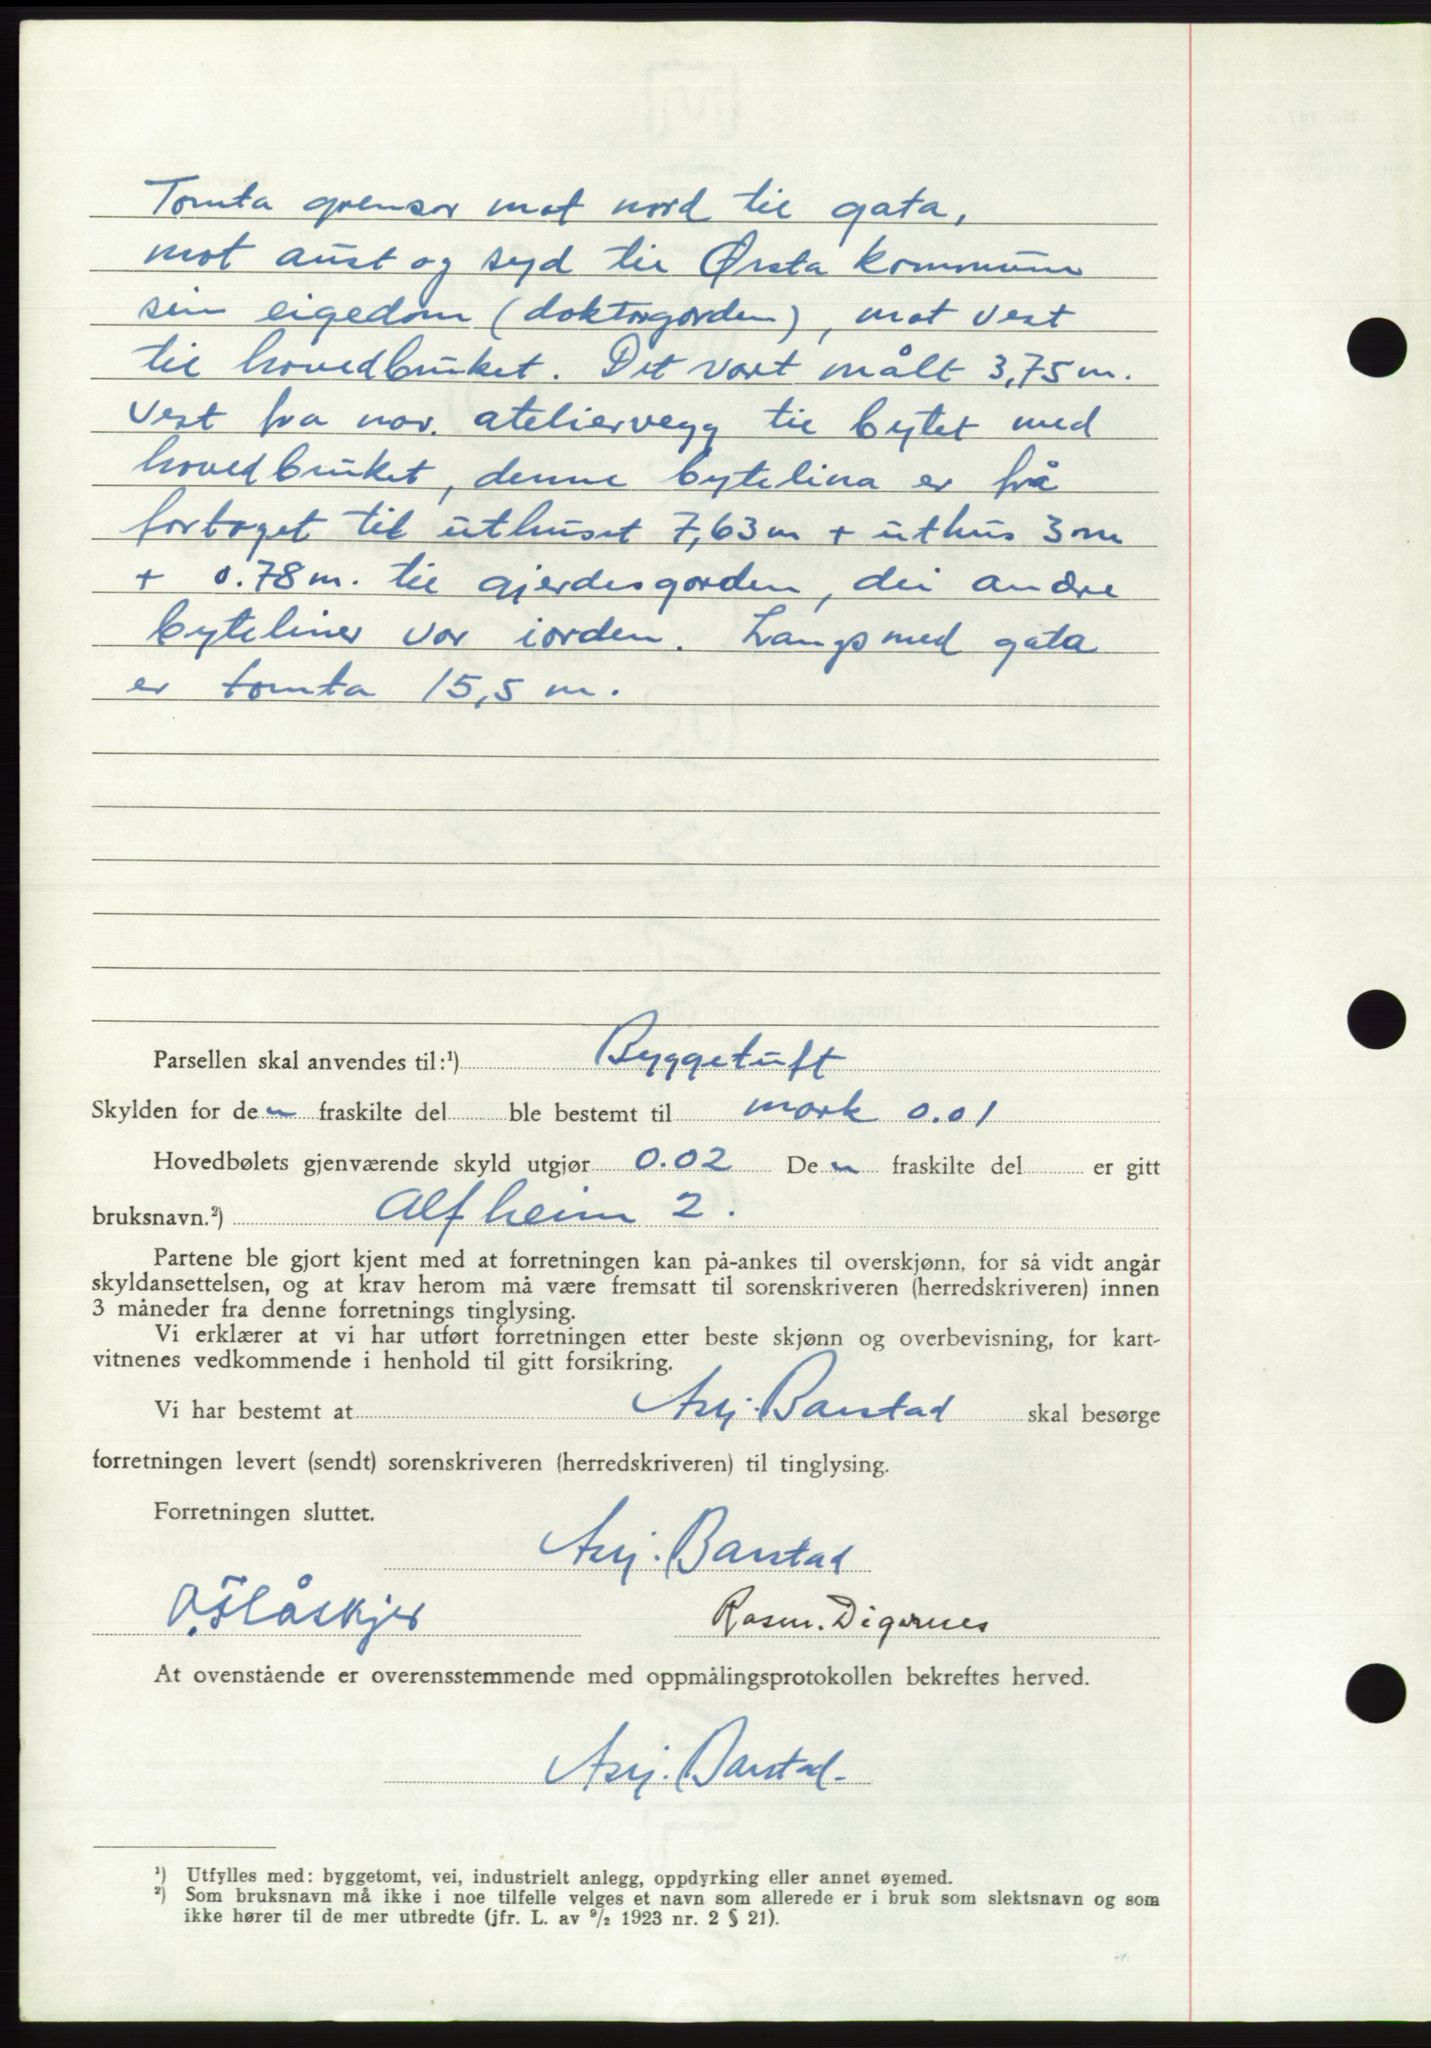 Tomta grenser mot nord til gata,
mot aust og syd til Ørsta kommune
sin eigedom (doktorgorden), mot vest
til hovedbruket. Det vart målt 3,75 m.
vest fra nov. ateliervegg til bytet med
hovedbruket, denne bytelina er frå
fortoget til uthuset 7,63 m + uthus 3 m
+ 0.78 m. til gjerdesgorden, dei andre
byteliner var i orden. Langs med gata
er tomta 15,5 m.
Parsellen skal anvendes til:¹) Byggetuft
Skylden for den fraskilte del ble bestemt til mark 0.01
Hovedbølets gjenværende skyld utgjør 0.02 Den fraskilte del er gitt
bruksnavn.²) Alfheim 2.
Partene ble gjort kjent med at forretningen kan på-ankes til overskjønn, for så vidt angår
skyldansettelsen, og at krav herom må være fremsatt til sorenskriveren (herredskriveren) innen
3 måneder fra denne forretnings tinglysing.
Vi erklærer at vi har utført forretningen etter beste skjønn og overbevisning, for kart-
vitnenes vedkommende i henhold til gitt forsikring.
Vi har bestemt at Asbj. Barstad skal besørge
forretningen levert (sendt) sorenskriveren (herredskriveren) til tinglysing.
Forretningen sluttet.
Asbj. Barstad
O. Flåskjer Rasm. Digernes
At ovenstående er overensstemmende med oppmålingsprotokollen bekreftes herved.
Asbj. Barstad.
¹) Utfylles med: byggetomt, vei, industrielt anlegg, oppdyrking eller annet øyemed.
²) Som bruksnavn må ikke i noe tilfelle velges et navn som allerede er i bruk som slektsnavn og som
ikke hører til de mer utbredte (jfr. L. av 9/2 1923 nr. 2 § 21).